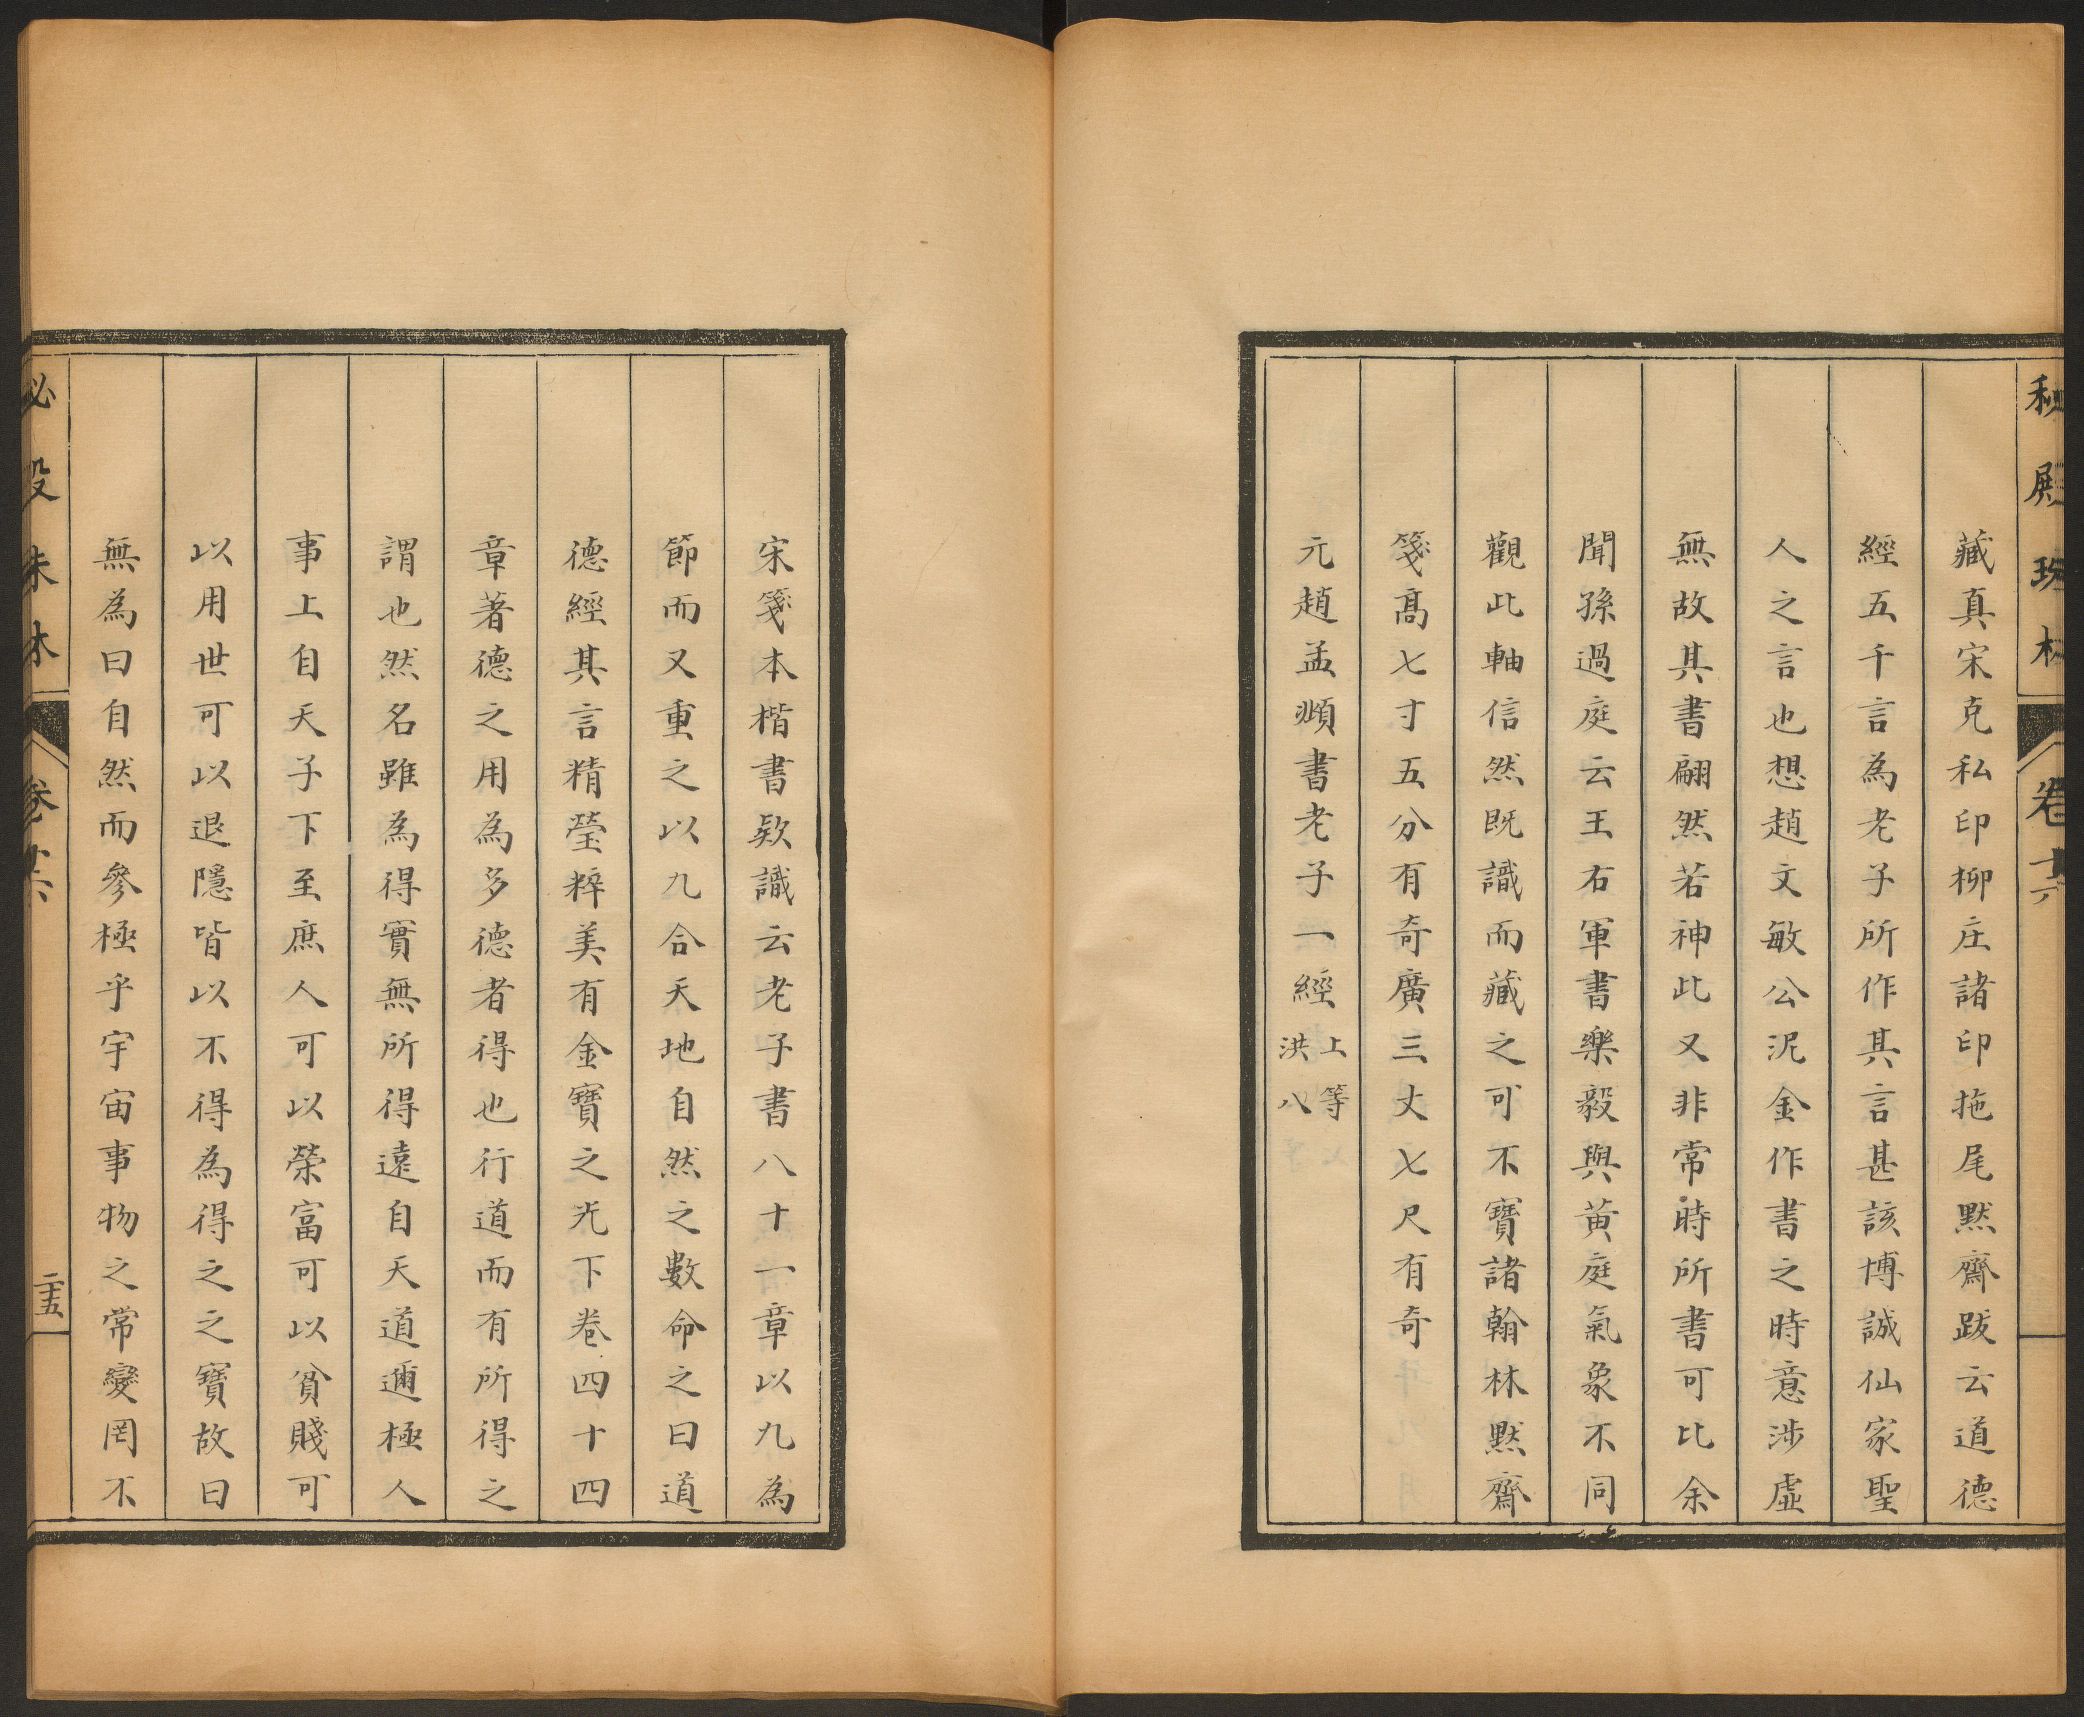 秘殿珠林 卷十六
藏真宋克私印柳庄諸印拖尾黙齋跋云道德
經五千言為老子所作其言甚該博誠仙家聖
人之言也想趙文敏公泥金作書之時意涉虛
無故其書翩然若神此又非常時所書可比余
聞孫過庭云王右軍書樂毅與黃庭氣象不同
觀此軸信然既識而藏之可不寶諸翰林黙齋
箋髙七寸五分有奇廣三丈七尺有奇
元趙孟頫書老子一經上等
洪八
宋箋本楷書欵識云老子書八十一章以九為
節而又重之以九合天地自然之數命之曰道
德經其言精瑩粹美有金寶之光下卷四十四
章著德之用為多德者得也行道而有所得之
謂也然名雖為得實無所得逺自天道邇極人
事上自天子下至庶人可以榮富可以貧賤可
以用世可以退隱皆以不得為得之之寶故曰
無為曰自然而參極乎宇宙事物之常變罔不
秘殿珠林 卷十六 二十五